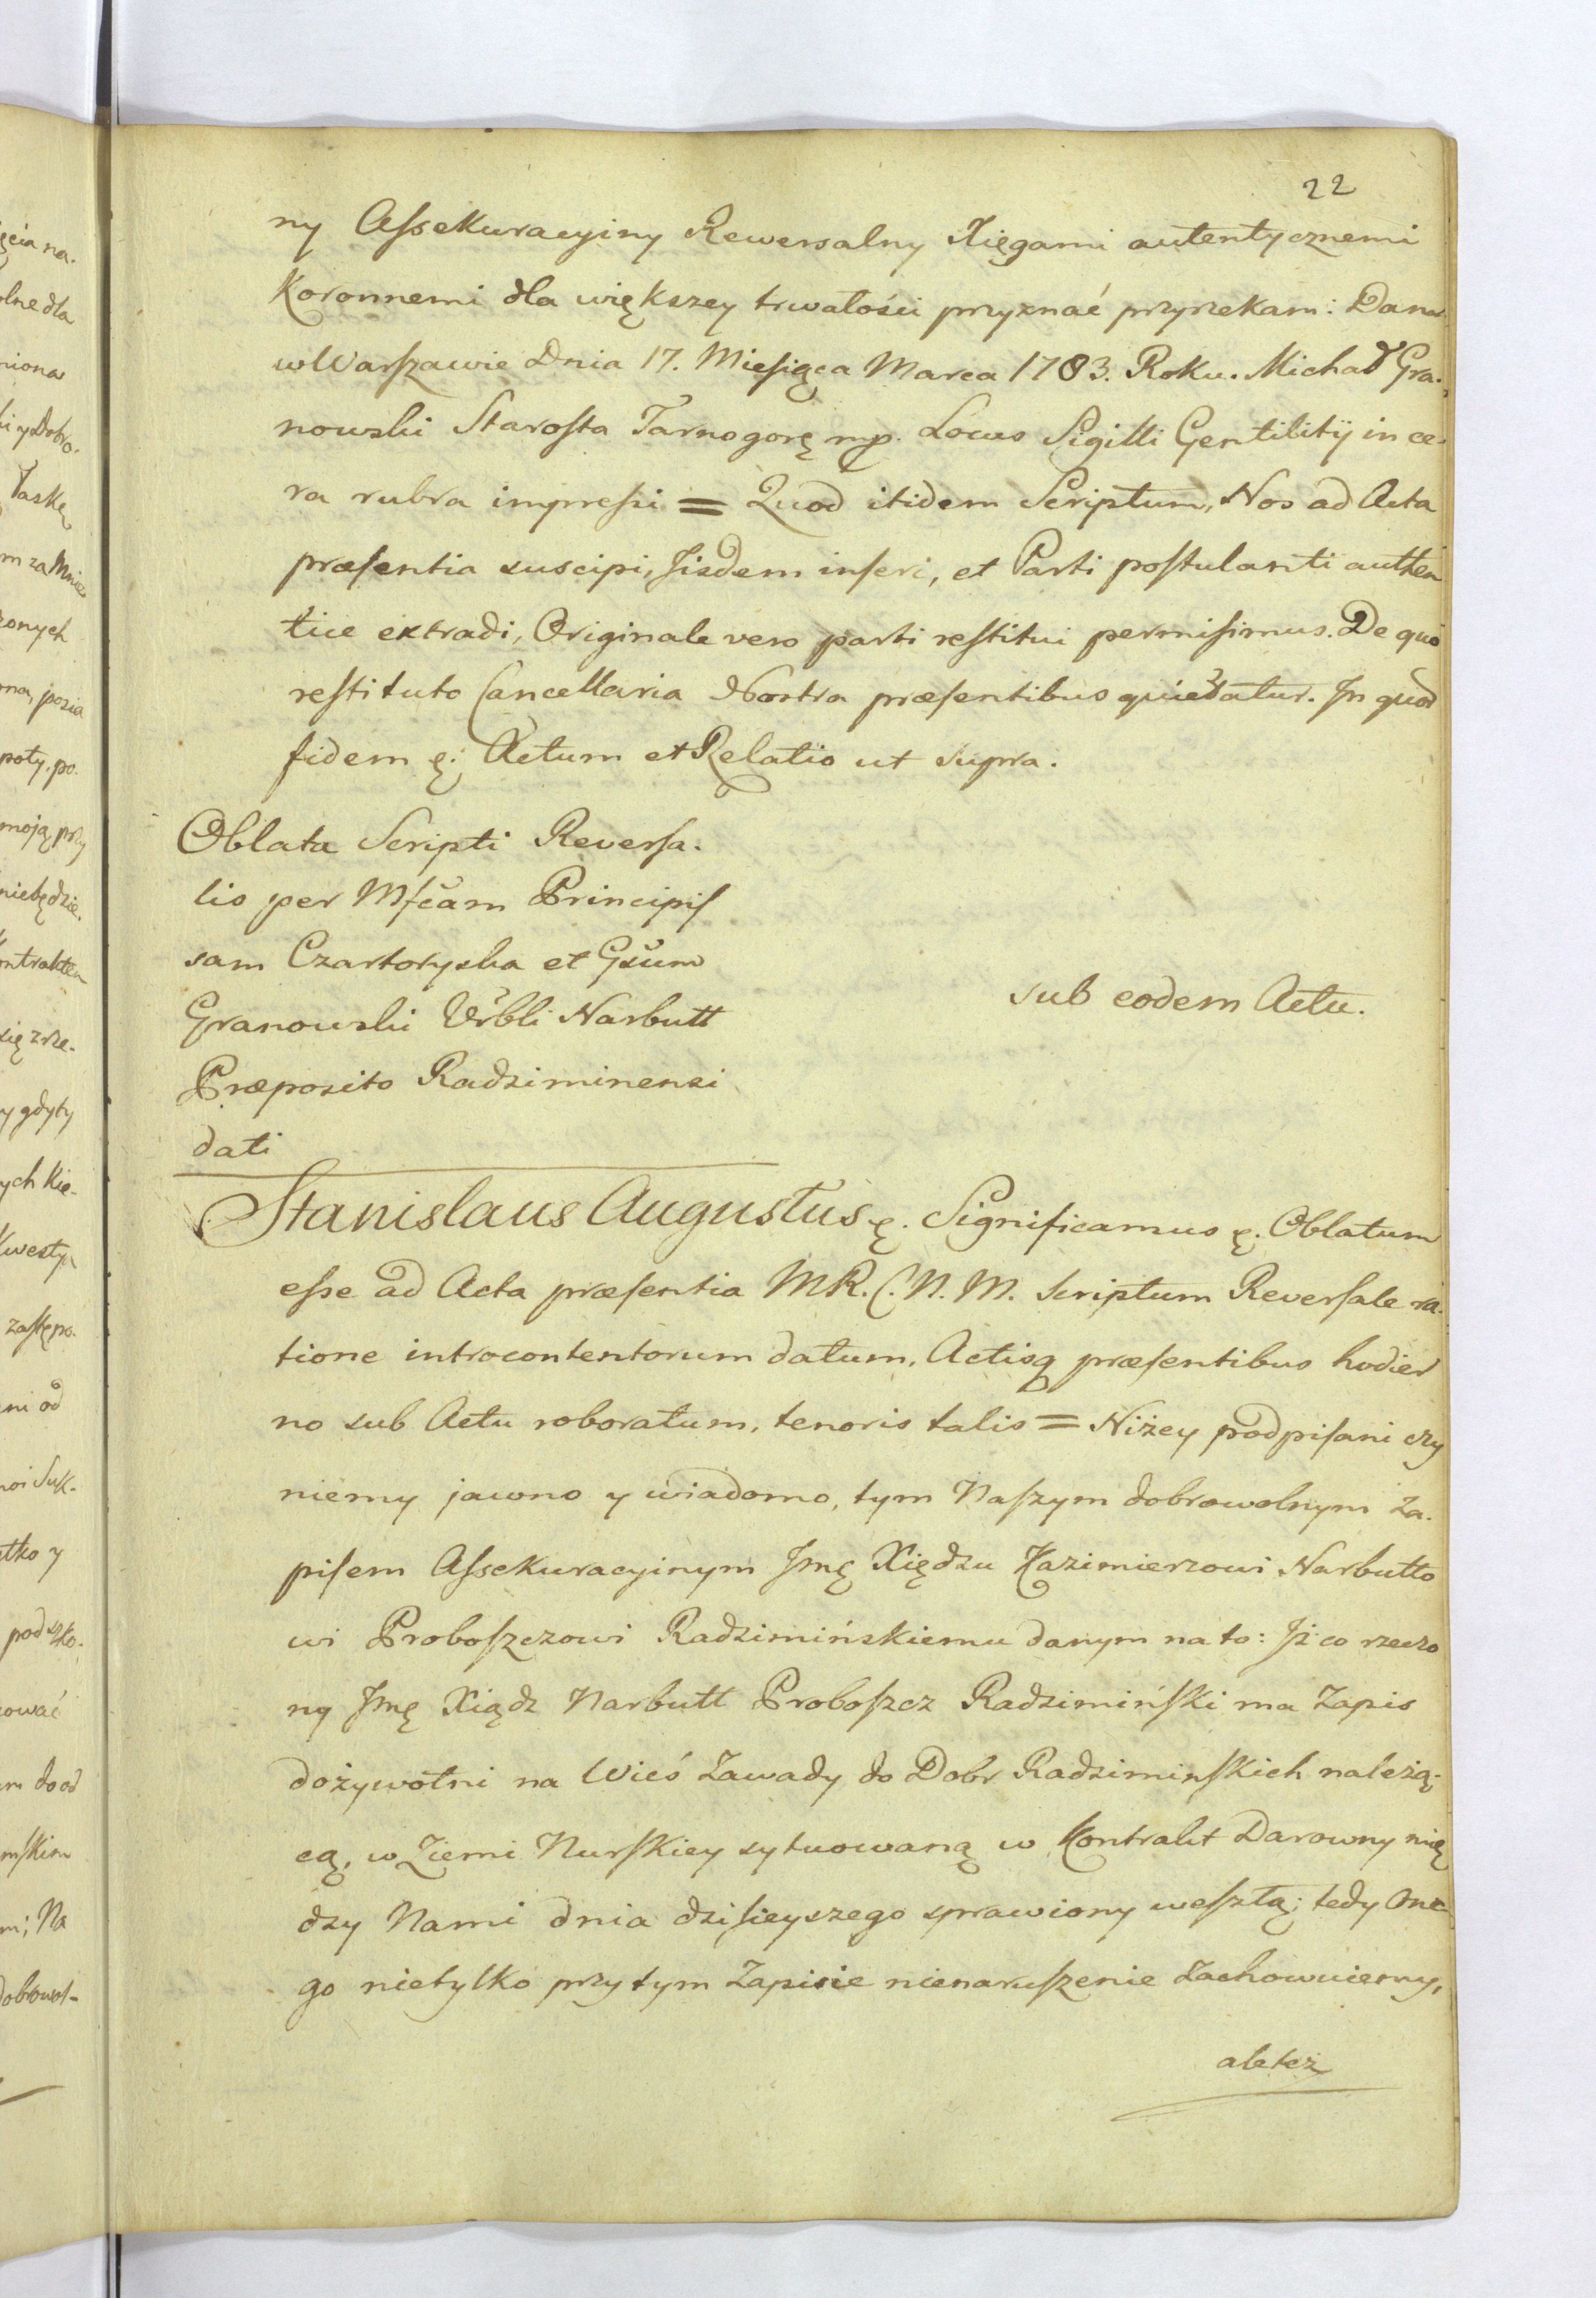 22
ny Aſsekuracyiny Rewersalny Xięgami autentycznemi
Koronnemi dla większey trwałości przyznać przyrzekam: Dan
w Warſzawie Dnia 17. Mieſiąca Marca 1783. Roku. Michał Gra-
nowski Staroſta Tarnogorę mp. Locus Sigilli Gentilitÿ in ce-
ra rubra impreſsi = Quod itidem Scriptum, Nos ad Acta
præſentia suscipi, Jisdem inſeri, et Parti poſtulanti authen
tice extradi, Originale vero parti reſtitui permiſimus. De quo
reſtituto Cancellaria Nostra præſentibus quietatur. In quod
fidem ę: Actum et Relatio ut supra.
Oblata Scripti Reverſa-
lis per Mſcam Principiſ
sam Czartoryska et Gsum
Granowski Vrbli Narbutt
Præposito Radziminensi
dati
sub eodem Actu.
Stanislaus Augustus ę. Significamus ę. Oblatum
eſse ad Acta præſentia MR. C. N. M. Scriptum Reverſale ra-
tione introcontentorum datum, Actisq præſentibus hodier
no sub Actu roboratum, tenoris talis = Niżey podpiſani czy
niemy jawno y wiadomo, tym Naſzym dobrowolnym Za-
piſem Aſsekuracyinym Jmę Xiędzu Kazimierzowi Narbutto
wi Proboſzczowi Radzimińskiemu danym na to: Jż co rzeczo
ny Jmę Xiądz Narbutt Proboſzcz Radzimińſki ma Zapis
dożywotni na Wieś Zawady do Dobr Radziminſkich należą-
cą, w Ziemi Nurſkiey sytuowaną w Kontrakt Darowny mię
dzy Nami dnia dziſieyszego sprawiony weſzłą; tedy One-
go nietylko przy tym Zapisie nienaruſzenie Zachowuiemy,
ale też